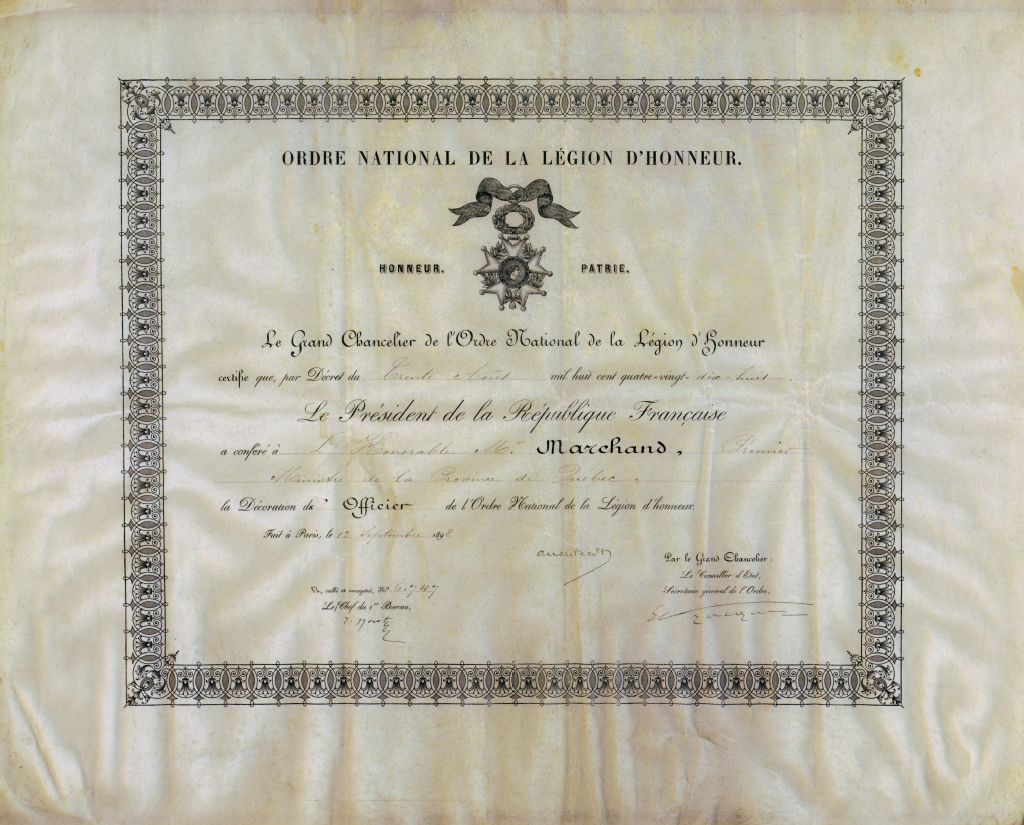 ORDRE NATIONAL DE LA LÉGION D'HONNEUR.
HONNEUR. PATRIE.
Le Grand Chancelier de l'Ordre National de la Légion d'Honneur
certifie que, par Décret du Trente Août mil huit cent quatre-vingt-dix-huit.
Le Président de la République Française
a conféré à L'Honorable Mr. Marchand, Premier
Ministre de la Province de Québec,
la Décoration d' Officier de l'Ordre National de la Légion d'honneur.
Fait à Paris, le 12 Septembre 1898.
Par le Grand Chancelier:
Le Conseiller d'Etat,
Secrétaire général de l'Ordre,
Vu, scellé et enregistré, No 6.747
Le Chef du 1er Bureau,